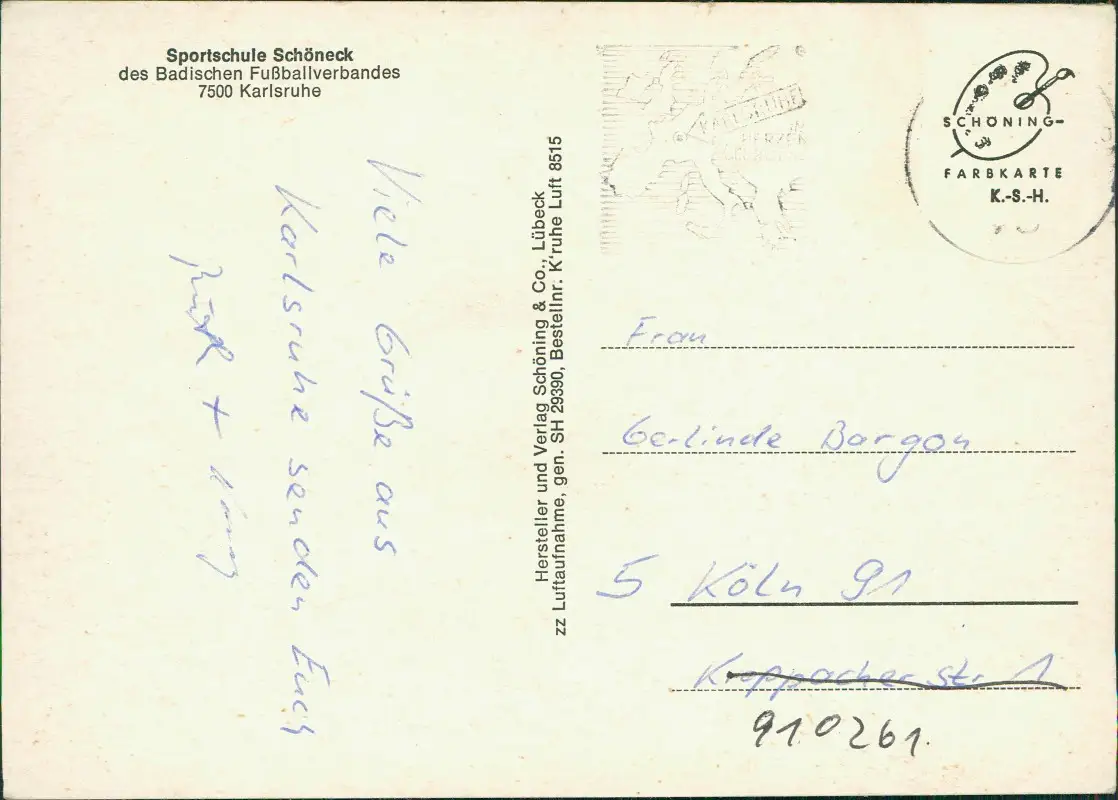 Sportschule Schöneck
des Badischen Fußballverbandes
7500 Karlsruhe
Viele Grüße aus
Karlsruhe senden Euch
+
Hersteller und Verlag Schöning & Co., Lübeck
zz Luftaufnahme, gen. SH 29390, Bestellnr. K'ruhe Luft 8515
SCHÖNING-
FARBKARTE
K.-S.-H.
Frau
Gerlinde Bargon
5 Köln 91
Kroppacher str. 1
910261.